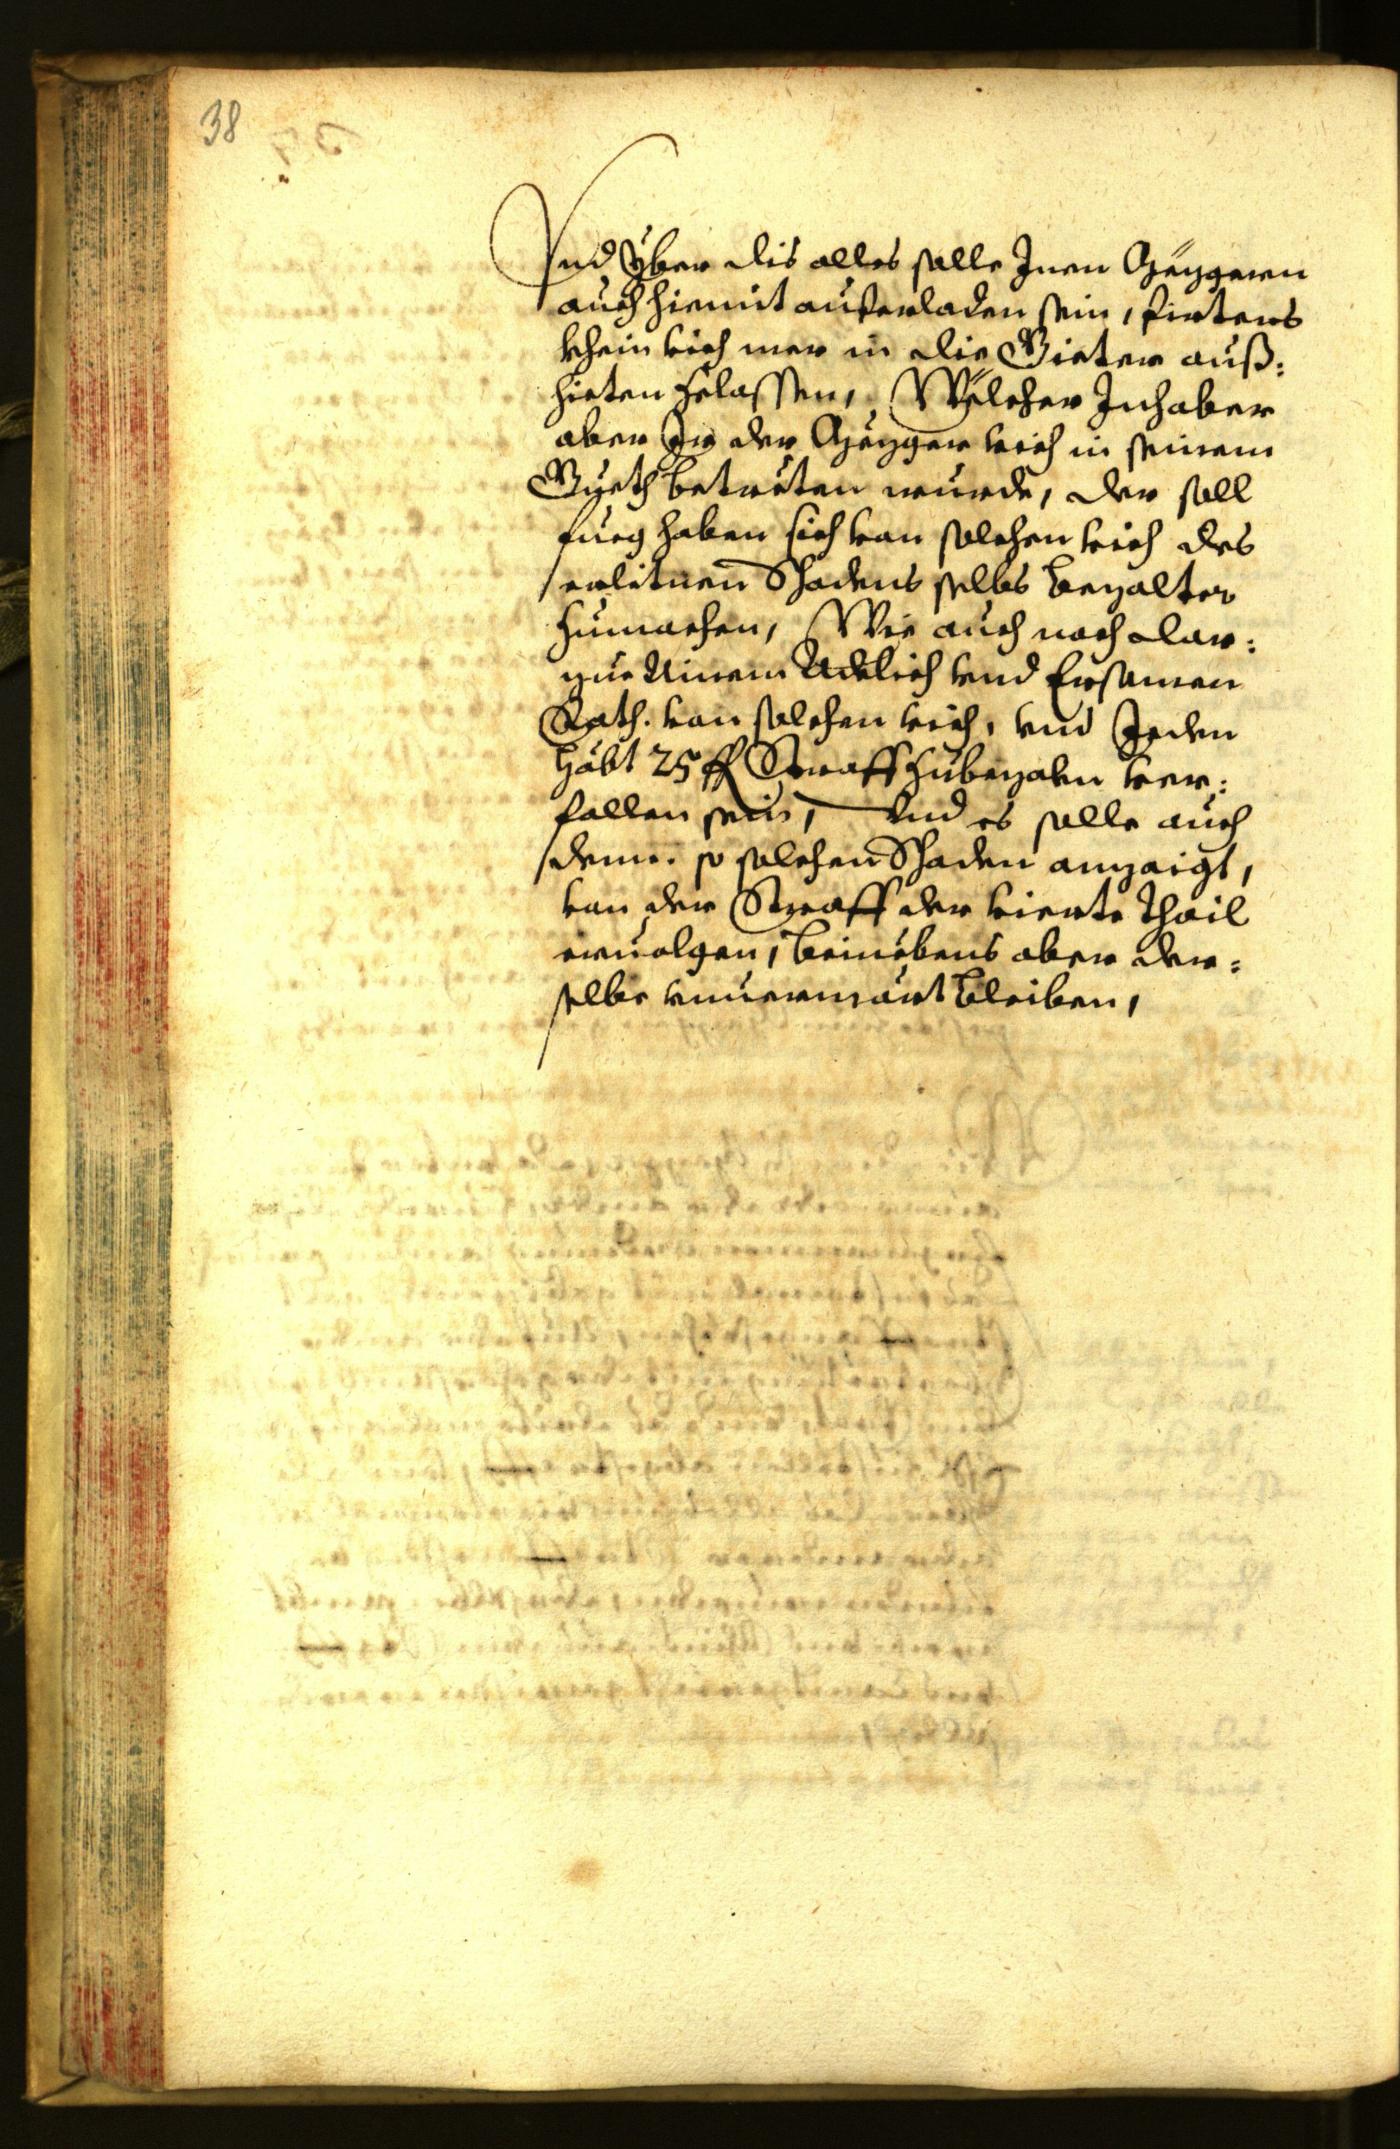 38
Vnd yber dis alles solle Jnen Gäyggern
auch hiemit auferladen sein, firters
khein vich mer in die Gieter auß:
hieten zelassen, Wëlcher Jnhaber
aber Jr der Gäygger vich in seinem
Gueth betretten wurde, der soll
fueg haben sich von solchen vich des
erlitnen Schadens selbs bezalter
zumachen, Wie auch noch dar:
zue Ainem Adelich vnd Ersamen
Rath. von solchen vich, von Jeden
häbt 25 ℔ Straff zubezaln ver:
fallen sein, Vnd es solle auch
deme. so solchen Schaden anzaigt,
von der Straff der vierte Thail
eruolgen, beinëbens aber der:
selbe vnuermärt bleiben,